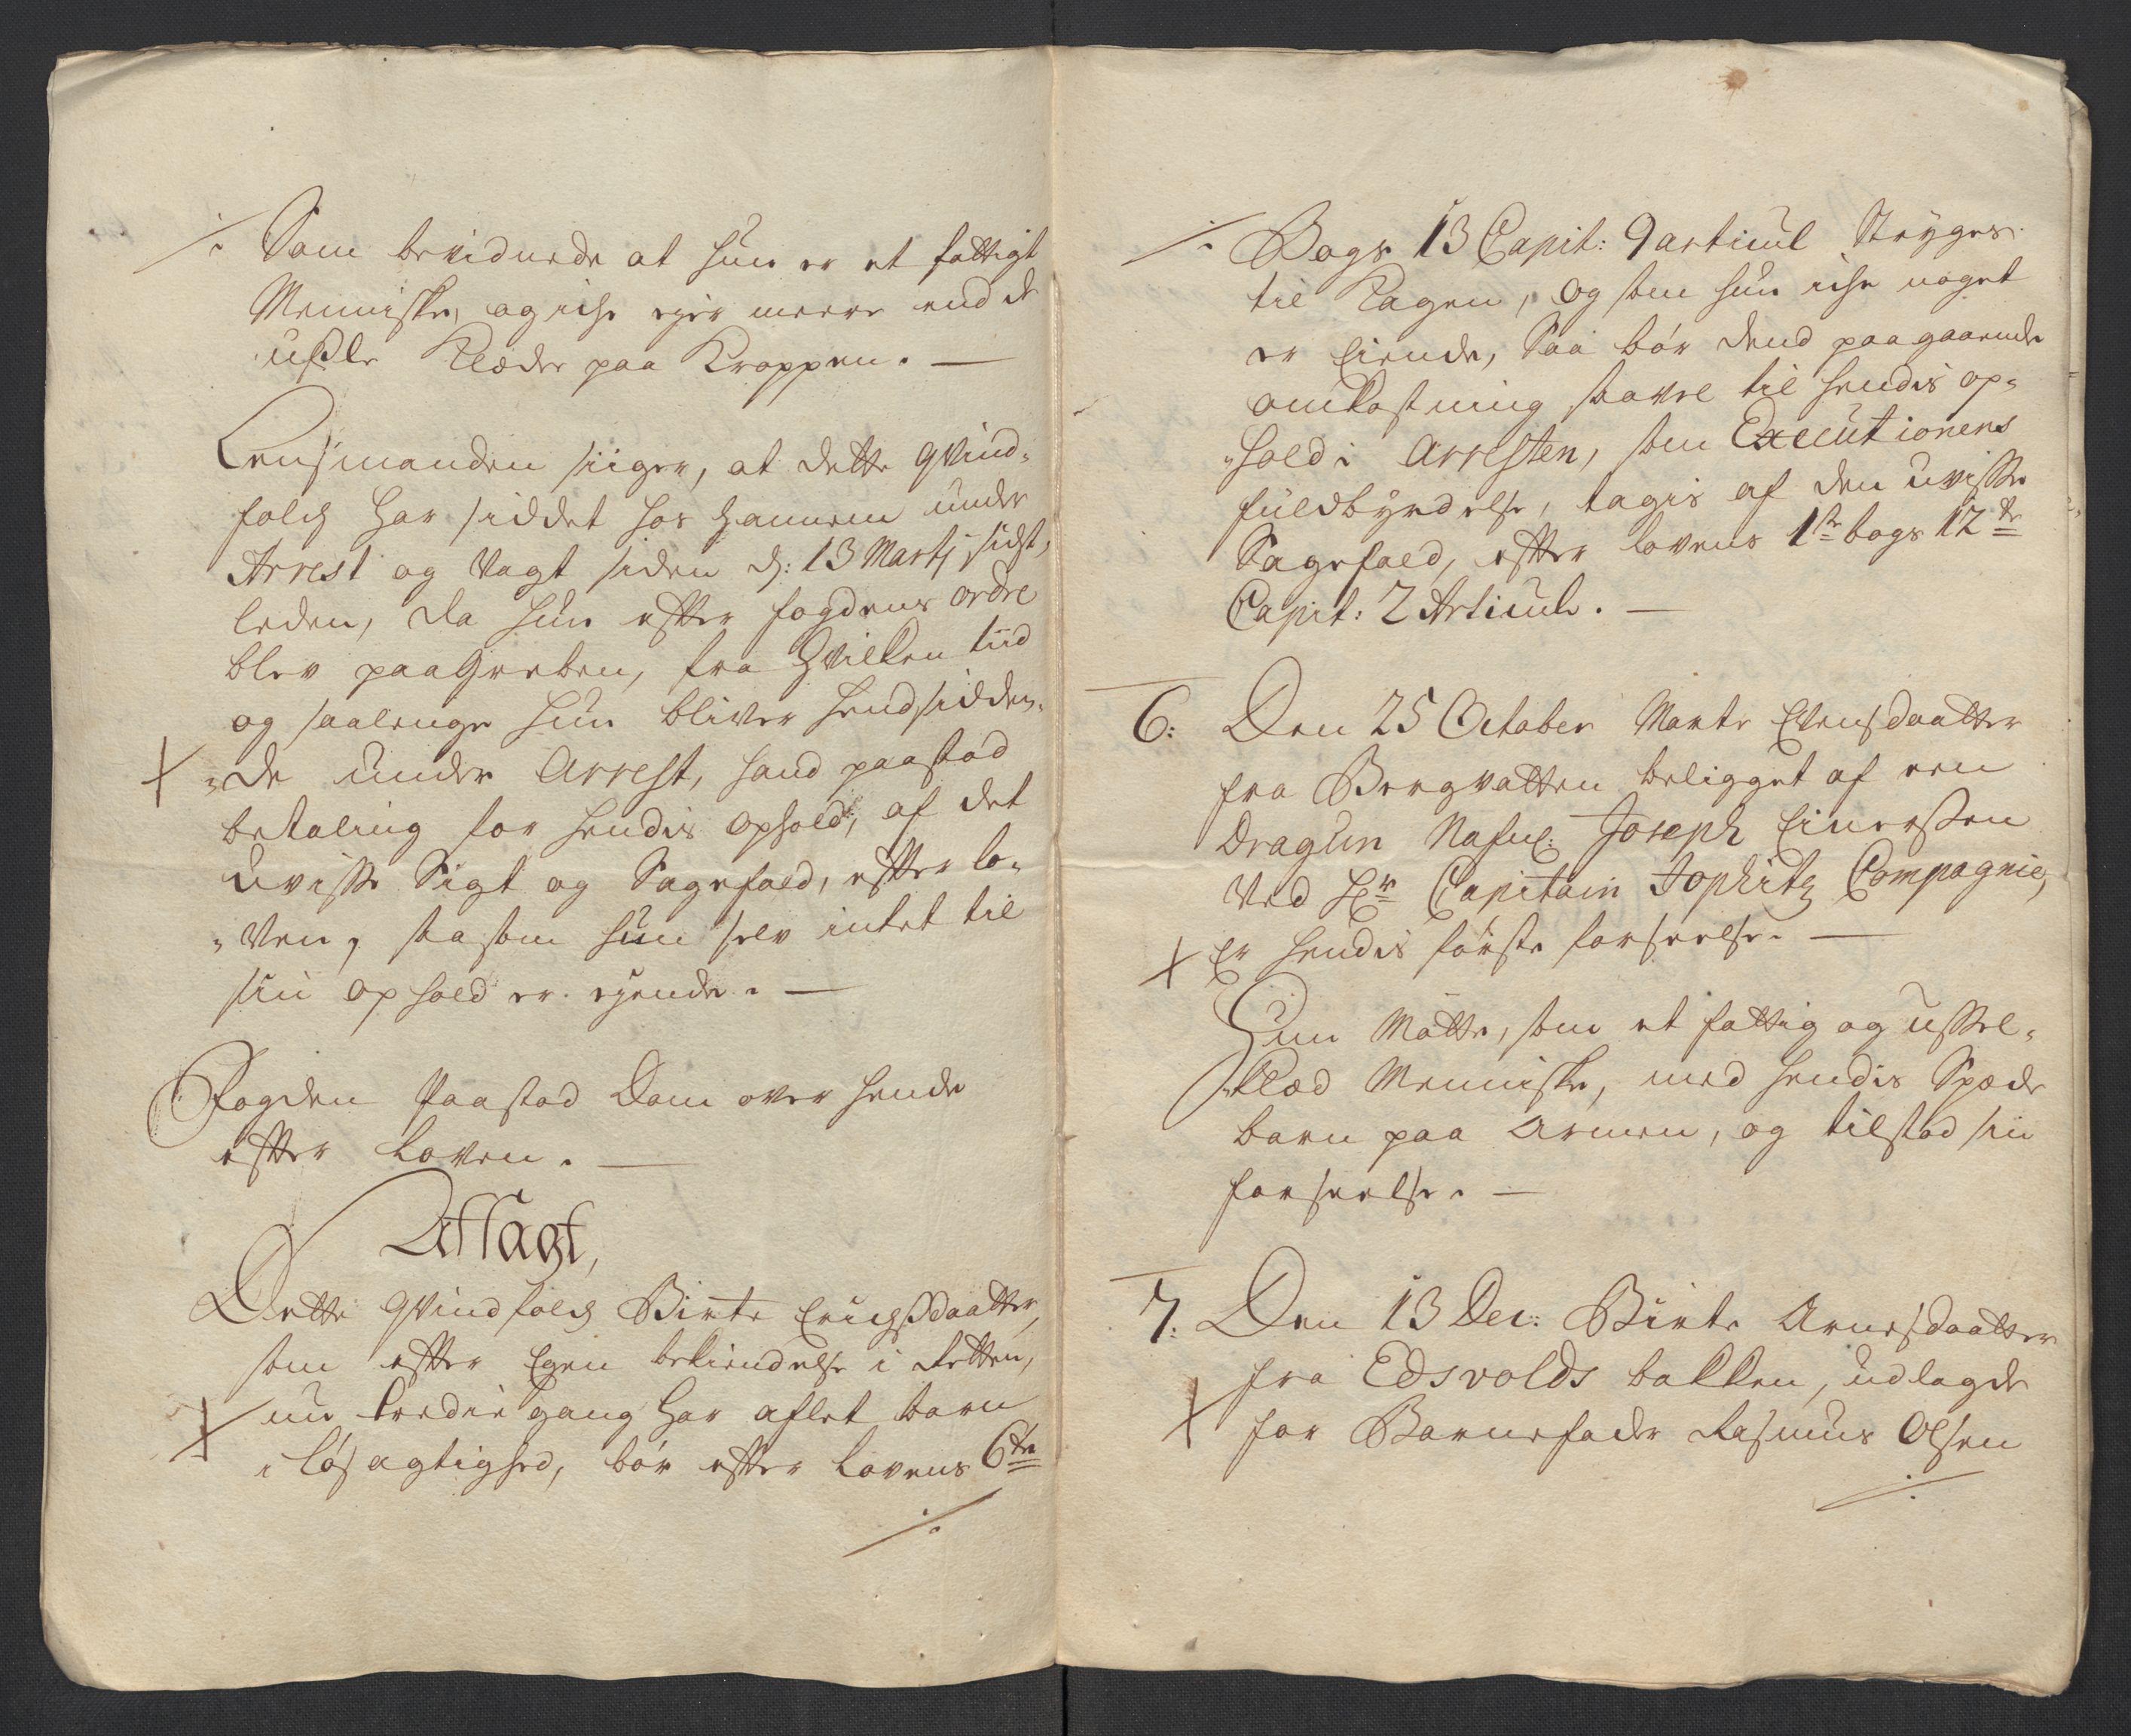 Som bevidnede at hun er et fattigt
Menniske, og iche ejer meere end de
usle Klæder paa Kroppen. —
Lensmanden siiger, at dette qvind-
folch har siddet hos hannem under
Arrest og Vagt siden d: 13 Martj sidst-
leden, da hun efter fogdens ordre
blev paagreben, fra hvilken tiid
og saalenge hun bliver hendsidden-
de under Arrest, hand paastod
betaling for hendis ophold, af det
uvisse Sigt og Sagefald, efter lo-
ven, saasom hun selv intet til
sin ophold er ejende. —
Fogden paastod Dom over hende
efter Loven. —
Afsagt,
Dette qvindfolch Birte Erichsdaatter,
som efter Egen bekiendelse i Retten,
nu tredie gang har aflet barn
i løsagtighed, bør efter Lovens 6te
Bogs 13 Capit: 9 articul Stryges
til Kagen, og som hun iche noget
er Eiende, Saa bør dend paagaaende
omkostning saavel til hendis op-
hold i Arresten, som Executionens
fuldbyrdelse, tagis af den uvisse
Sagefald, efter lovens 1ste bogs 12te
Capit: 2 Articul. —
6: Den 25 October Marte Evensdaatter
fra Bergvatten beligget af een
Dragun Nafnl: Joseph Einersen
Ved Hr Capitain Jophitz Compagnie,
Er hendis første forseelse. —
Hun Mötte, som et fattig og ussel-
klæd Menniske, med hendis Spæde
barn paa Armen, og tilstod sin
forseelse. —
7: Den 13 Dec: Birte Arnesdaatter
fra Edsvolds bakken, udlagde
for Barnefader Rasmus Olsen